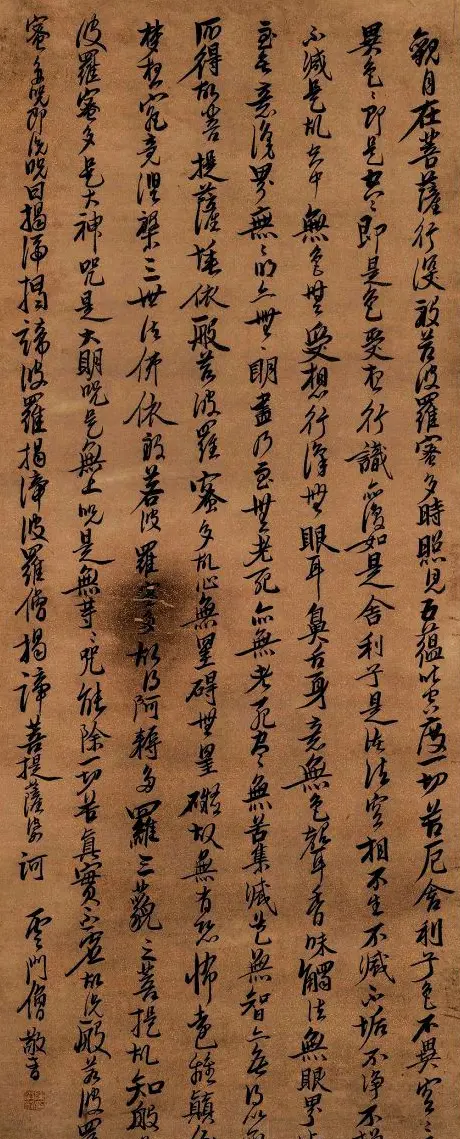 觀自在菩薩行深般若波羅蜜多時照見五蘊皆空度一切苦厄舍利子色不異空〻
異色〻即是空〻即是色受想行識亦復如是舍利子是諸法空相不生不滅不垢不淨不增
不減是故空中無色無受想行識無眼耳鼻舌身意無色聲香味觸法無眼界
至無意識界無〻明亦無〻明盡乃至無老死亦無老死盡無苦集滅道無智亦無得以
所得故菩提薩埵依般若波羅蜜多故心無罣礙無罣礙故無有恐怖遠離顛倒
夢想究竟涅槃三世諸佛依般若波羅蜜多故得阿耨多羅三藐三菩提故知般
波羅蜜多是大神咒是大明咒是無上咒是無等〻咒能除一切苦真實不虛故說般若波羅
蜜多咒即說咒曰揭諦揭諦波羅揭諦波羅僧揭諦菩提薩婆訶 雲門僧敬書